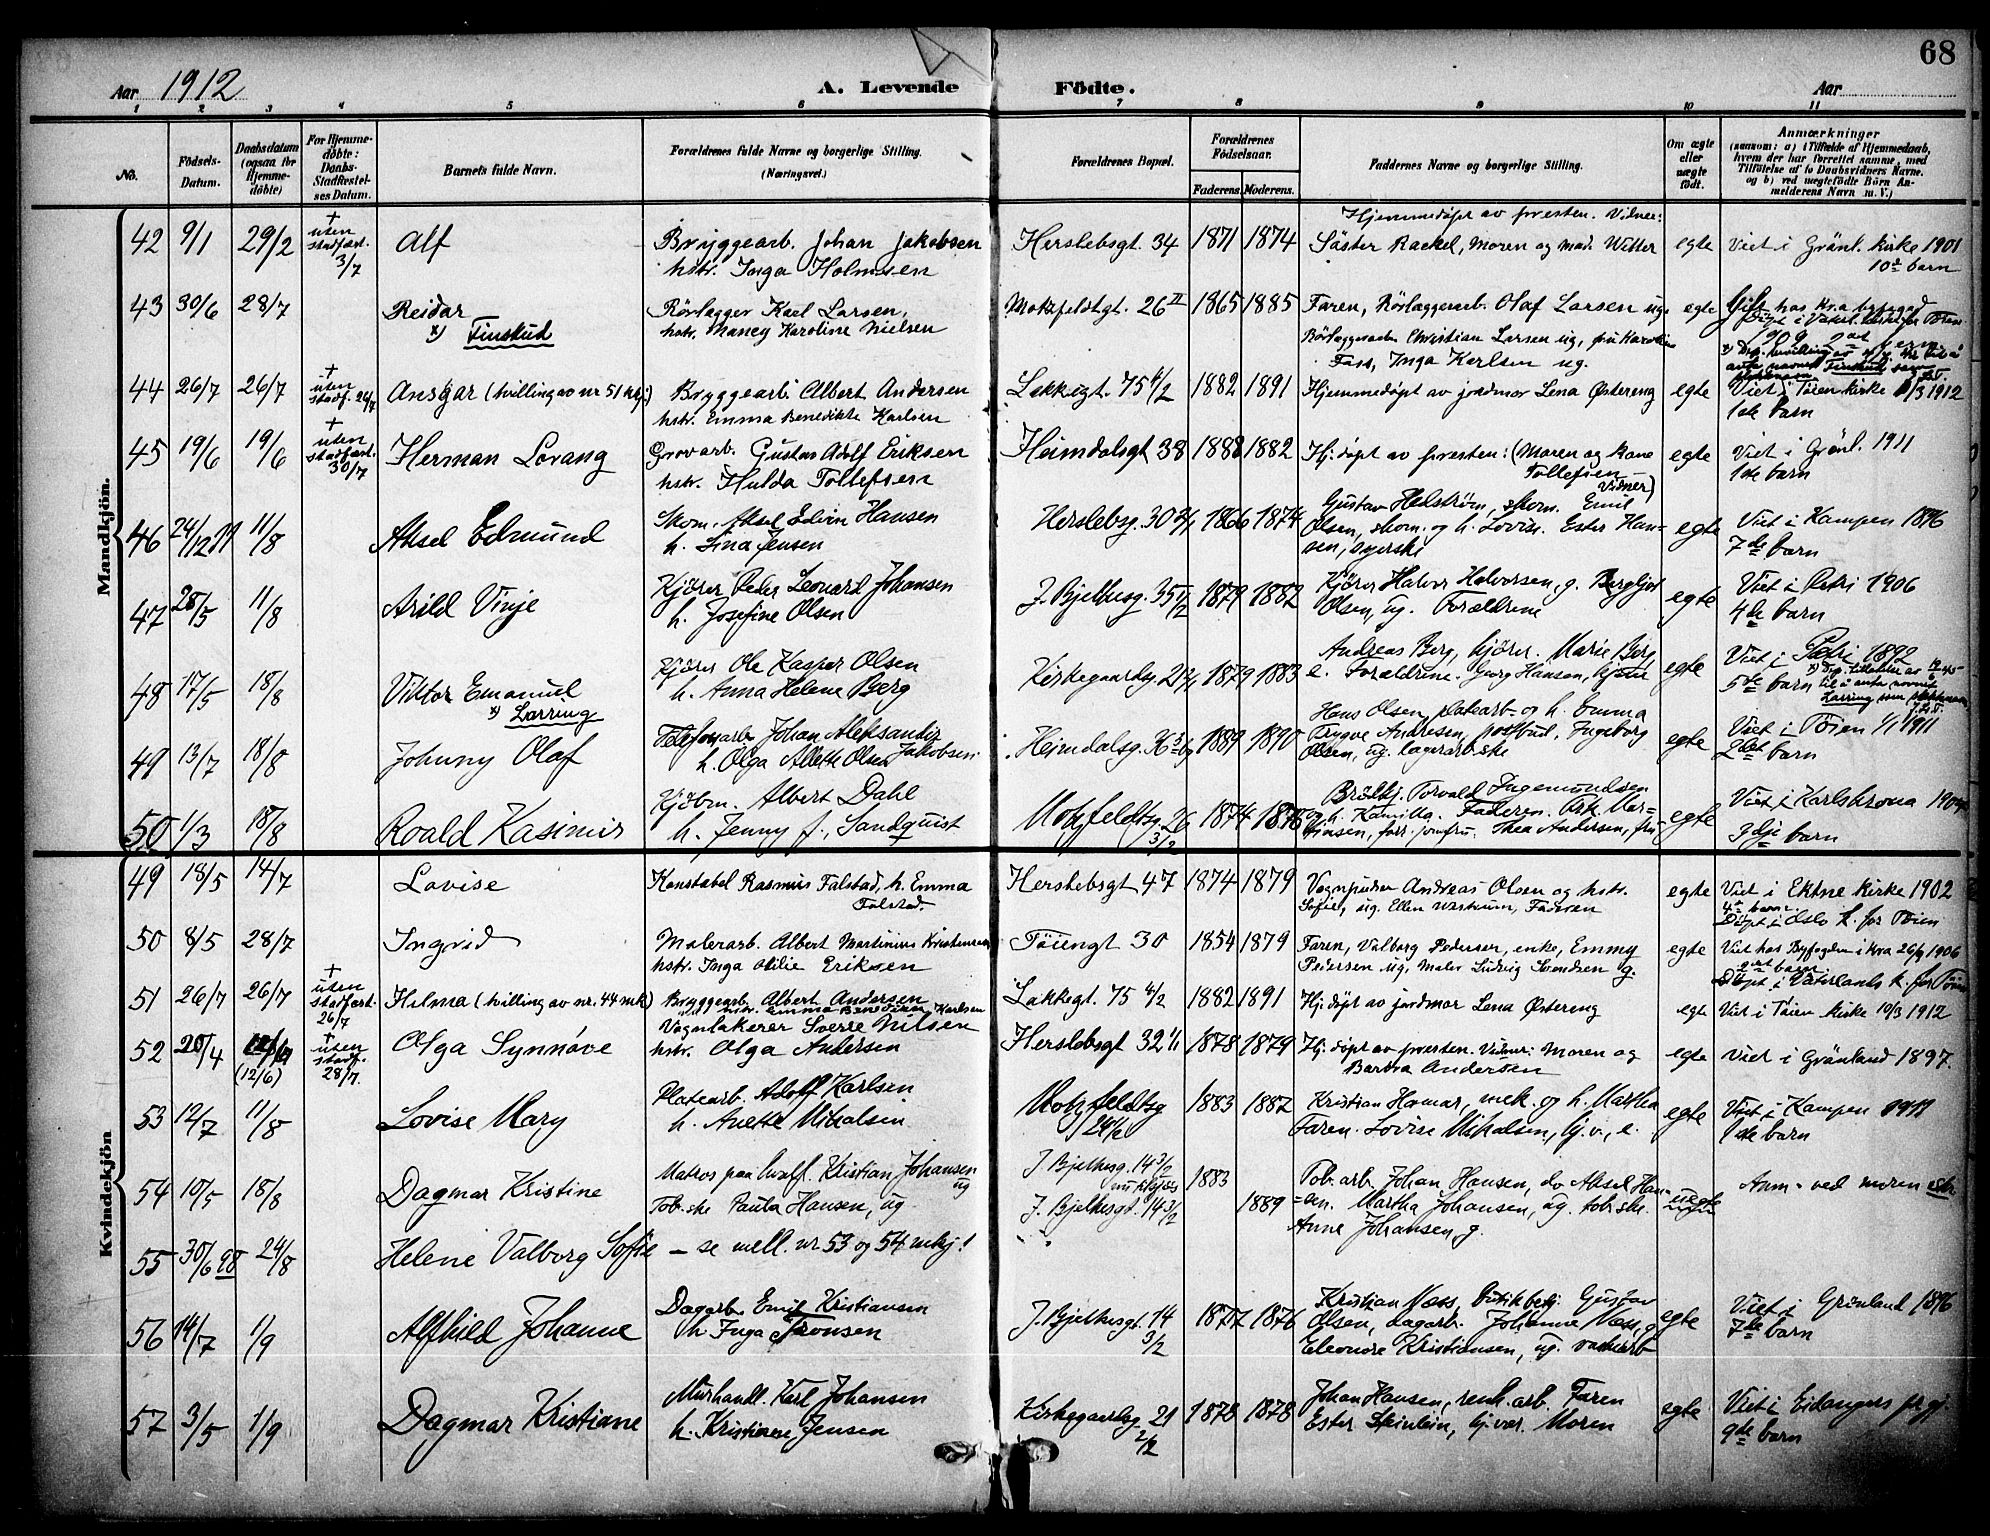 68
Aar 1912
A. Levende Fødte.
Aar
1 2 3 4 5 6 7 8 9 10 11
No.
Fødsels-Datum.
Daabsdatum (ogsaa for Hjemmedøbte)
For Hjemmedøbte: Daabs-Stadfæstelses Datum.
Barnets fulde Navn.
Forældrenes fulde Navne og borgerlige Stilling. (Næringsvei.)
Forældrenes Bopæl.
Forældrenes Fødselsaar.
Faderens. Moderens.
Faddernes Navne og borgerlige Stilling.
Om ægte eller uægte født.
Anmærkninger (saasom: a) i Tilfælde af Hjemmedaab, hvem der har forrettet samme, med Tilføielse af to Daabsvidners Navne, og b) ved uægtefødte Børn Anmelderens Navn m. V.)
Mandkjön.
42 9/1 29/2 + uten stadfæst. 3/7 Alf Bryggearb. Johan Jakobsen Herslebsgt. 34 1871 1874 Hjemmedøpt av presten. Vidner: egte Viet i Grønl. kirke 1901
hstr. Inga Holmsen Søster Rackel, Moren og mad. Witter 10de barn
43 30/6 28/7 Reidar Rørlægger Karl Larsen, Motzfeldtgt. 26 II 1865 1885 Faren, Rørlæggerarb. Olaf Larsen ug. egte Gift hos Kr.a byfoged
x) Finstud hstr. Nancy Karoline Nielsen Rørlæggersvend Christian Larsen ug, fru Karoline
Fass, Inga Karlsen ug.
44 26/7 26/7 + uten stadf. 26/7 Ansgar (tvilling av nr 51 kkj.) Bryggearb. Albert Andersen Lakkegt. 75 4/2 1882 1891 Hjemmedøpt av jordmor Lena Østereng egte Viet i Tøien kirke 10/3 1912
hstr. Emma Benedikte Karlsen 1ste barn
45 19/6 19/6 + uten stadfæst. 30/7 Herman Lorang Grovarb. Gustav Adolf Eriksen Heimdalsgt 38 1888 1882 Hj. døpt av presten: (Moren og kone egte Viet i Grønl. 1911
hstr. Hulda Tollefsen Tollefsen Vidner) 1ste barn
46 24/12 11 11/8 Aksel Edmund Skom. Aksel Edvin Hansen Herslebsg. 30 3/1 1866 1874 Gustav Hedstrøm, skom. Emil egte Viet i Kampen 1896
h. Lina Jensen Olsen, skom. og h. Lovise. Ester Hansen, syerske 7de barn
47 28/5 11/8 Arild Vinje Kjører Peder Leonard Johansen J. Bjelkesg. 35 II/2 1879 1882 Kjører Halvor Halvorsen, g. Bergljot egte Viet i Petri 1906
h. Josefine Olsen Olsen, ug. Forældrene 4de barn
48 17/5 18/8 Viktor Emanuel Kjører Ole Kasper Olsen Kirkegaardsg 1879 1883 Andreas Berg, kjører. Marie Berg egte Viet i Petri 1892
x) Larring h. Anna Helene Berg e. Forældrene. Georg Hansen, 5de barn
49 13/7 18/8 Johnny Olaf Telefonarb. Johan Aleksander Jakobsen Heimdalsg. 1889 1890 Hans Olsen, platearb. og h. Emma egte Viet i Tøien 1/1 1911
h. Olga Alette Olsen Trygve Andresen, postbud, Ingeborg Olsen, ug. lagerarb.ske 2det barn
50 1/3 18/8 Roald Kasimir Kjøbm. Albert Dahl Motzfeldtsg. 26 3/2 1874 1876 Torvald Ingemundsen egte Viet i Karlskrona
h. Jenny f. Sandquist og h. Kamilla. Faderen. Thea Andersen, fru 9dje barn
Kvindekjön
49 18/5 14/7 Lovise Konstabel Rasmus Falstad, h. Emma Falstad. Herslebsgt 47 1874 1879 Vognpudser Andreas Olsen og hstr. egte Viet i Ektne kirke 1902
Sofie, ug. Ellen Fadren 4de barn. Døpt i Oslo k. for Tøien
50 8/5 28/7 Ingrid Malerarb. Albert Martinius Kristensen Tøiengt 30 1854 1879 Faren, Valborg Pedersen, enke, Emmy egte Viet hos Byfogden i Kra 26/9 1906
hstr. Inga Otilie Eriksen Pedersen ug, Maler Ludvig Svendsen g. Døpt i Vaterlands k. for Tøien
51 26/7 26/7 + uten stadfæst. 26/7 Hilma (tvilling av nr. 44 mk) Bryggearb. Albert Andersen Lakkegt. 75 4/2 1882 1891 Hj. døpt av jordmor Lena Østereng egt Viet i Tøien kirke 10/3 1912
hstr. Emma Benedikte Karlsen
52 20/4 (12/6) + uten stadf. 28/7. Olga Synnøve Vognlakerer Sverre Nilsen Herslebsgt 32 1/1 1878 1879 Hj. døpt av presten. Vidner: Moren og egte Viet i Grønland 1897.
hstr. Olga Andersen Barbra Andersen
53 12/7 11/8 Lovise Mary Platearb. Adolf Karlsen Motzfeldtsg 1883 1882 Kristian Hamar, mek. og h. Martha egte Viet i Kampen 1911
h. Anette Mikalsen Faren. Lovise Mikalsen, hj.v., e. 1ste barn
54 10/5 18/8 Dagmar Kristine Matros paa hvalf. Kristian Johansen ug J. Bjelkesg. 14 3/2 1883 Tob. arb. Johan Hansen, do Aksel Hansen. uegte Anm. ved moren
Tob. ske Paula Hansen, ug J. Bjelkesgt. 14 3/2 1889 Martha Johansen, ug. tobr.ske.
Anne Johansen, g.
55 30/6 98 24/8 Helene Valborg Sofie – se mell. nr 53 og 54 mkj!
56 14/7 1/9 Alfhild Johanne Dagarb. Emil Kristiansen J. Bjelkesgt. 14 3/2 1877 1876 Kristian Næss, butikbestj. Gustav egte Viet i Grønland 1896
h Inga Aronsen Olsen, dagarb. Johanne Næss, g 7de barn
Eleonore Kristiansen, ug.
57 3/5 1/9 Dagmar Kristiane Murhandl. Karl Johansen Kirkegaardsg 21 2/2 1878 1878 Johan Hansen, renh. arb. Faren egte Viet i Eidanger
h. Kristiane Jensen Ester Steinlein, hj. vær. Moren 9de barn